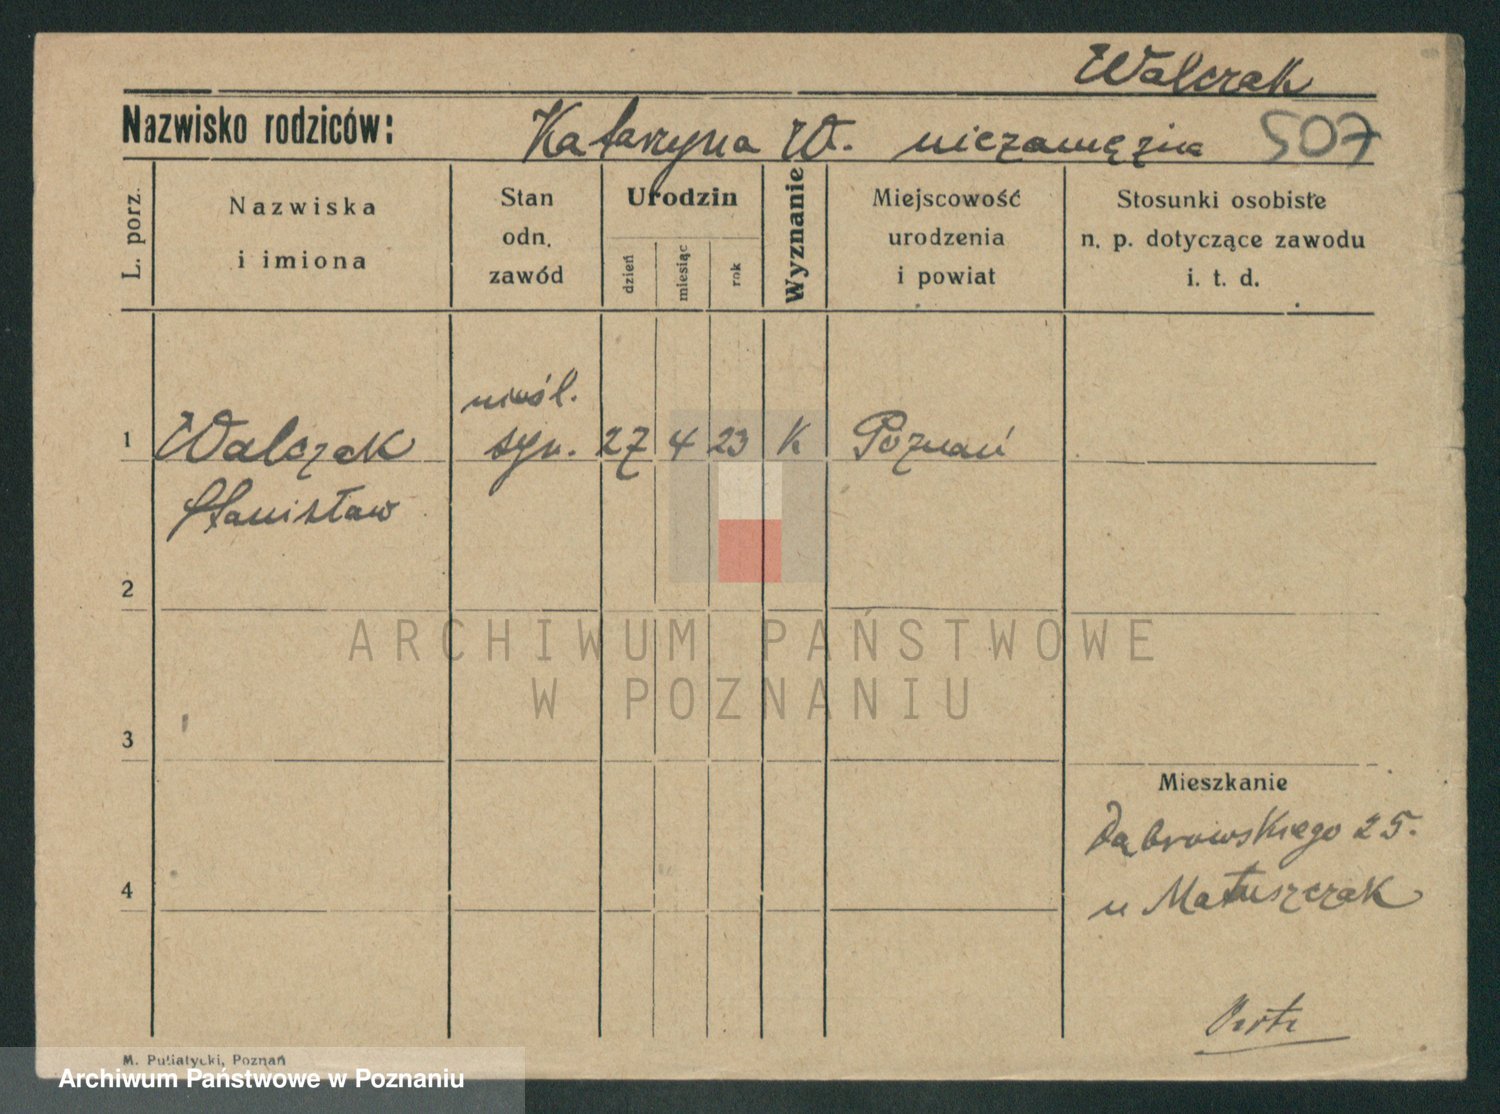 Walczak
Nazwisko rodziców: Katarzyna W. niezamężna 507
L. porz.
Nazwiska
i imiona
Stan
odn.
zawód
Urodzin
dzień
miesiąc
rok
Wyznanie
Miejscowość
urodzenia
i powiat
Stosunki osobiste
n. p. dotyczące zawodu
i. t. d.
nieśl.
1 Walczak syn. 27 4 23 K Poznań
Stanisław
2
ARCHIWUM PAŃSTWOWE
W POZNANIU
3
Mieszkanie
Dąbrowskiego 25.
4
u Matuszczak
M. Putiatycki, Poznań
Archiwum Państwowe w Poznaniu